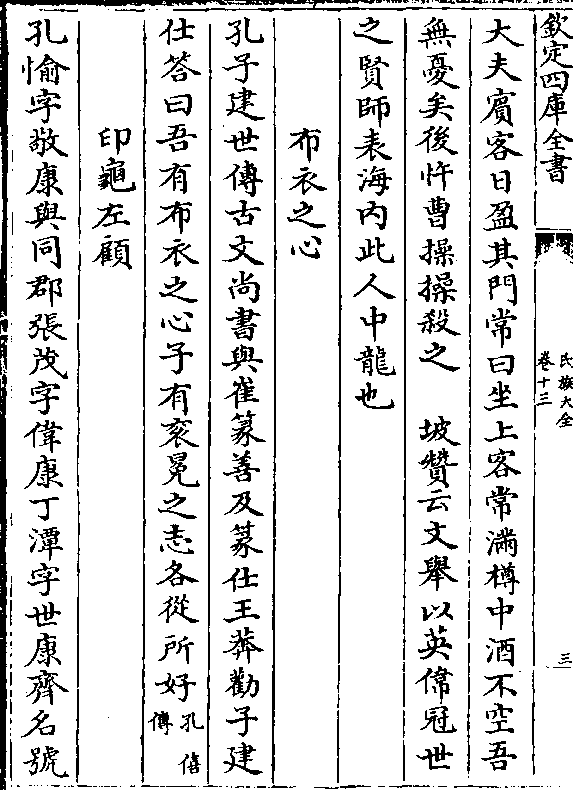 欽定四庫全書
氏族大全
卷十三
三
大夫賓客日盈其門常曰坐上客常滿樽中酒不空吾
無憂矣後忤曹操操殺之 坡贊云文舉以英偉冠世
之賢師表海內此人中龍也
布衣之心
孔子建世傳古文尚書與崔篆善及篆仕王莽勸子建
仕答曰吾有布衣之心子有袞冕之志各從所好孔僖傳
印龜左顧
孔愉字敬康與同郡張茂字偉康丁潭字世康齊名號